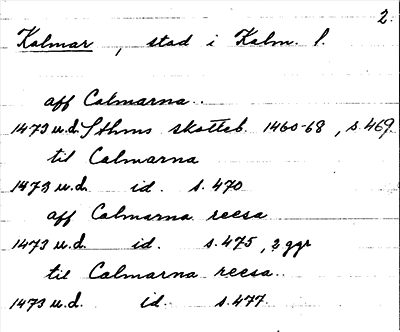 2.
Kalmar, stad i Kalm. l.
aff Calmarna..
1473 u.d. Sthms skotteb. 1460-68, s.469
til Calmarna
1473 u.d. id. s.470
aff Calmarna reesa
1473 u.d. id. s.475, 2 ggr
til Calmarna reesa..
1473 u.d. id. s.477.